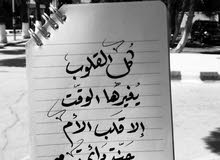 كُل القلوب
يُغيّرها الوقت
إلا قلب الأم